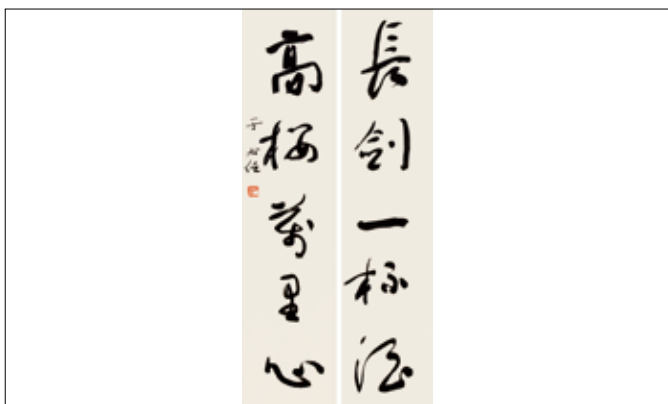 長劍一杯酒
高楼萬里心
于右任